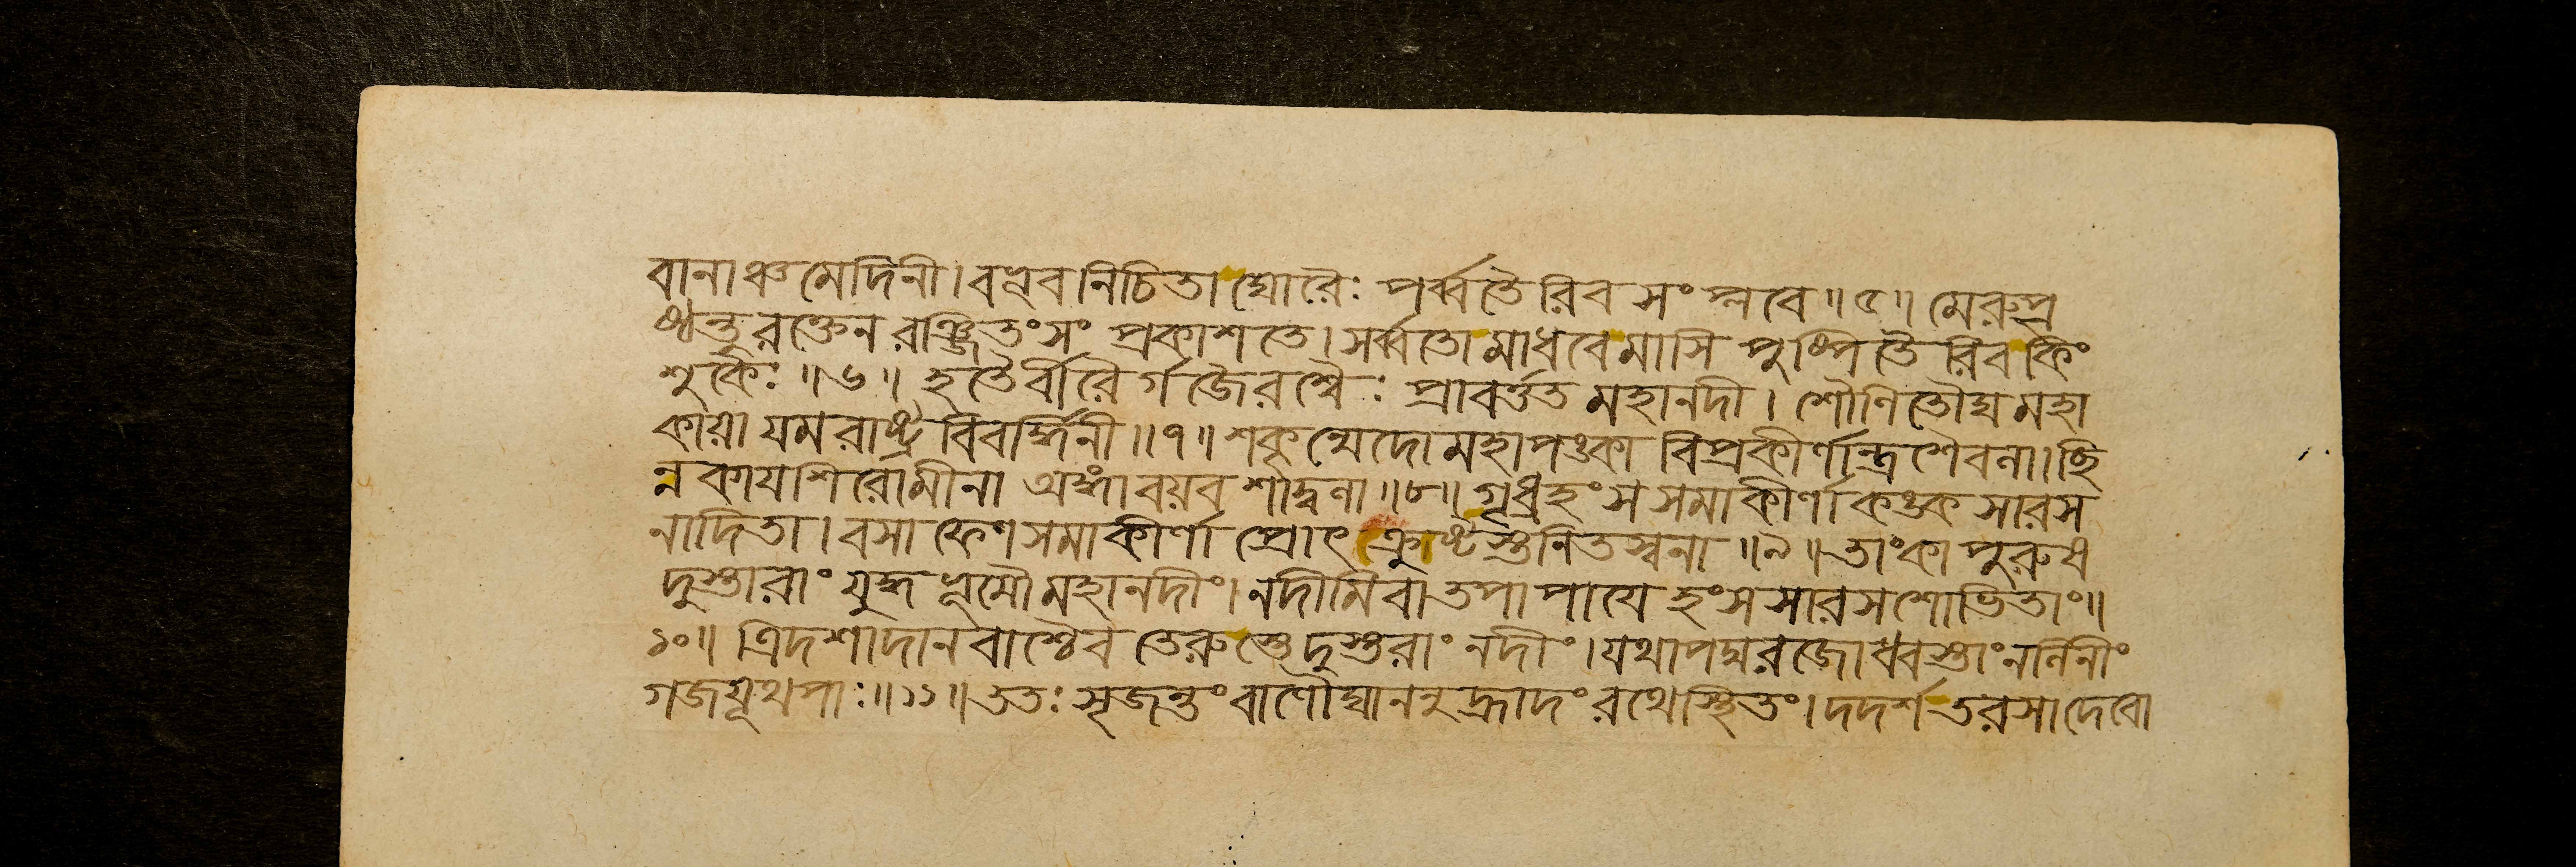 বানাঞ্চ মেদিনী। বভূব নিচিতা ঘোরৈঃ পর্ব্বতৈরিব সংপ্লবে॥৫॥ মেরুপ্র
স্থন্তু রক্তেন রঞ্জিতং সংপ্রকাশতে। সর্ব্বতো মাধবে মাসি পুষ্পিতৈরিব কিং
শুকৈঃ॥৬॥ হতৈর্বীরৈর্গজৈরশ্বৈঃ প্রাবর্ত্তত মহানদী। শোণিতৌঘমহা
কায়া যমরাষ্ট্রবিবর্দ্ধিনী॥৭॥ শকৃন্মেদোমহাপঙ্কা বিপ্রকীর্ণান্ত্রশৈবলা। ছি
ন্নকাযশিরোমীনা অঙ্গাবয়বশাদ্বলা॥৮॥ গৃধ্রহংসসমাকীর্ণা কঙ্কসারস
নাদিতা। বসাফেণসমাকীর্ণা প্রোৎক্রুষ্টস্তনিতস্বনা॥৯॥ তাং কাপুরুষ
দুস্তারাং যুদ্ধভূমৌ মহানদীং। নদীমিবাতপাপাযে হংসসারসশোভিতাং॥
১০॥ ত্রিদশা দানবাশ্চৈব তেরুস্তে দুস্তরাং নদীং। যথা পদ্মরজোধ্বস্তাং নলিনীং
গজযূথপাঃ॥১১॥ ততঃ সৃজন্তং বাণৌঘাননুহ্রাদং রথে স্থিতং। দদর্শ তরসা দেবো